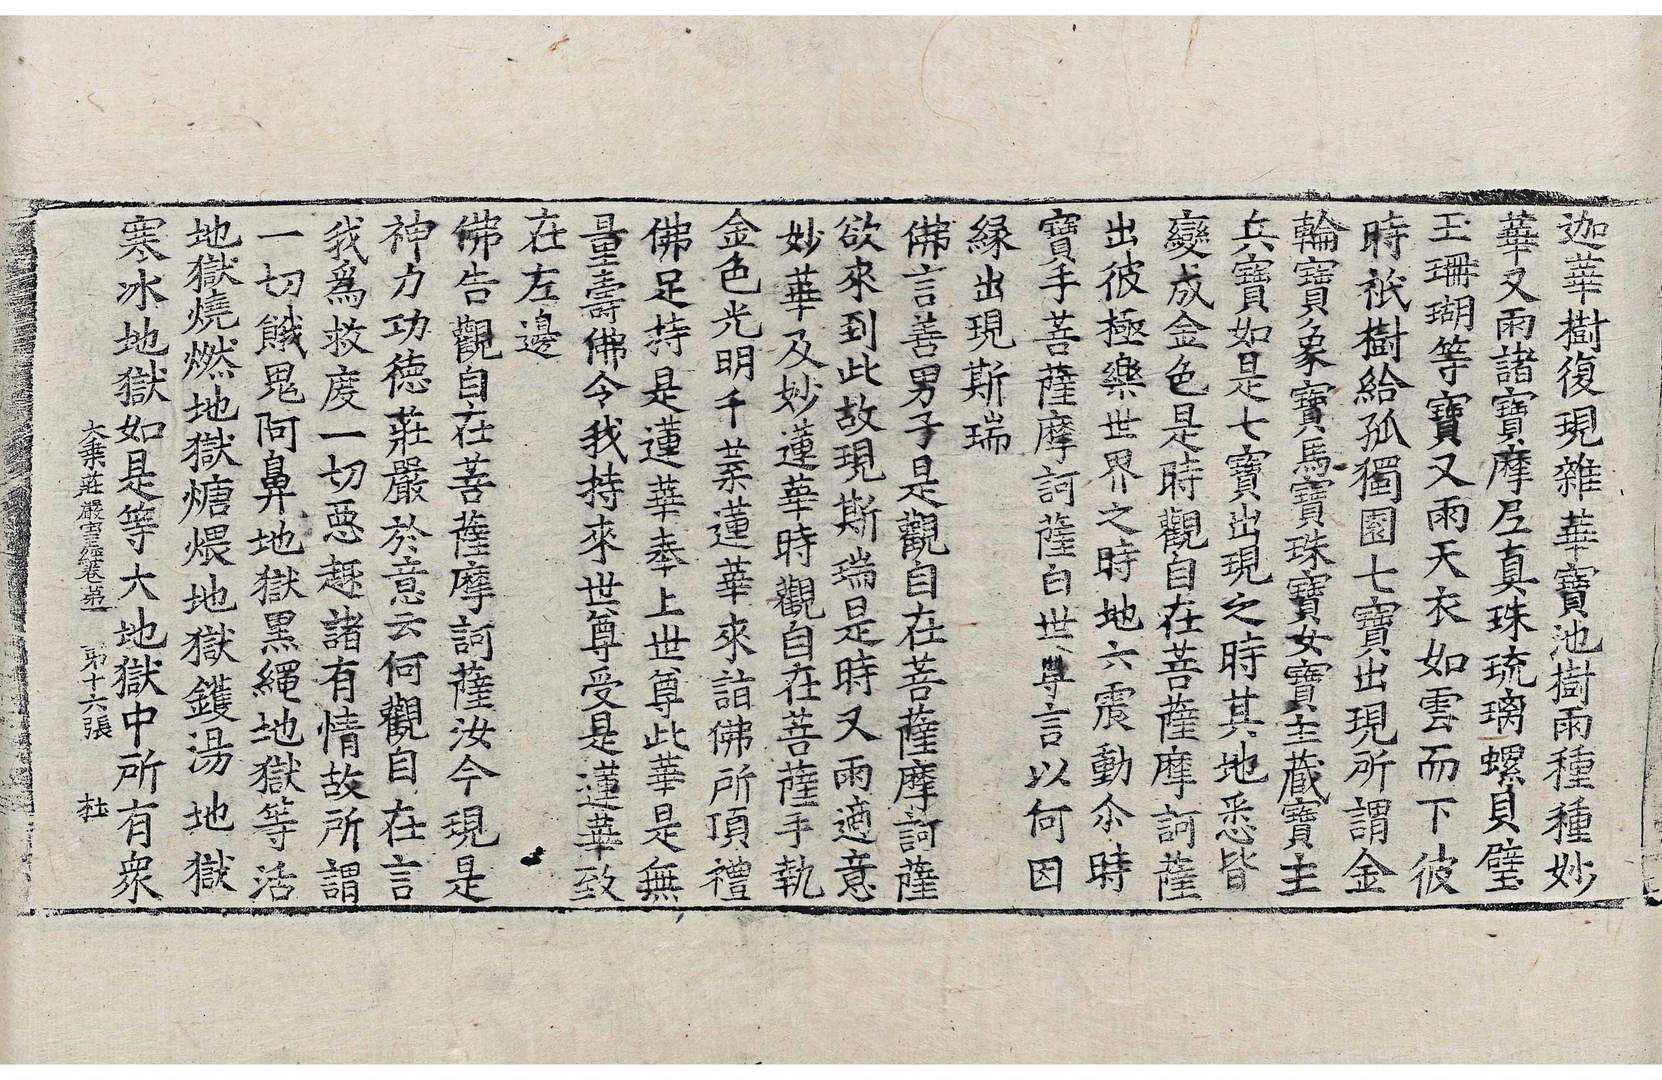 迦華樹復現雜華寶池樹雨種種妙
華又雨諸寶摩尼真珠琉璃螺貝璧
玉珊瑚等寶又雨天衣如雲而下彼
時祇樹給孤獨園七寶出現所謂金
輪寶象寶馬寶珠寶女寶主藏寶主
兵寶如是七寶出現之時其地悉皆
變成金色是時觀自在菩薩摩訶薩
出彼極樂世界之時地六震動尒時
寶手菩薩摩訶薩白世尊言以何因
緣出現斯瑞
佛言善男子是觀自在菩薩摩訶薩
欲來到此故現斯瑞是時又雨適意
妙華及妙蓮華時觀自在菩薩手執
金色光明千葉蓮華來詣佛所頂禮
佛足持是蓮華奉上世尊此華是無
量壽佛令我持來世尊受是蓮華致
在左邊
佛告觀自在菩薩摩訶薩汝今現是
神力功德莊嚴於意云何觀自在言
我為救度一切惡趣諸有情故所謂
一切餓鬼阿鼻地獄黑繩地獄等活
地獄燒燃地獄煻煨地獄鑊湯地獄
寒冰地獄如是等大地獄中所有衆
大乘莊嚴寶王經卷第一 第十六張 杜